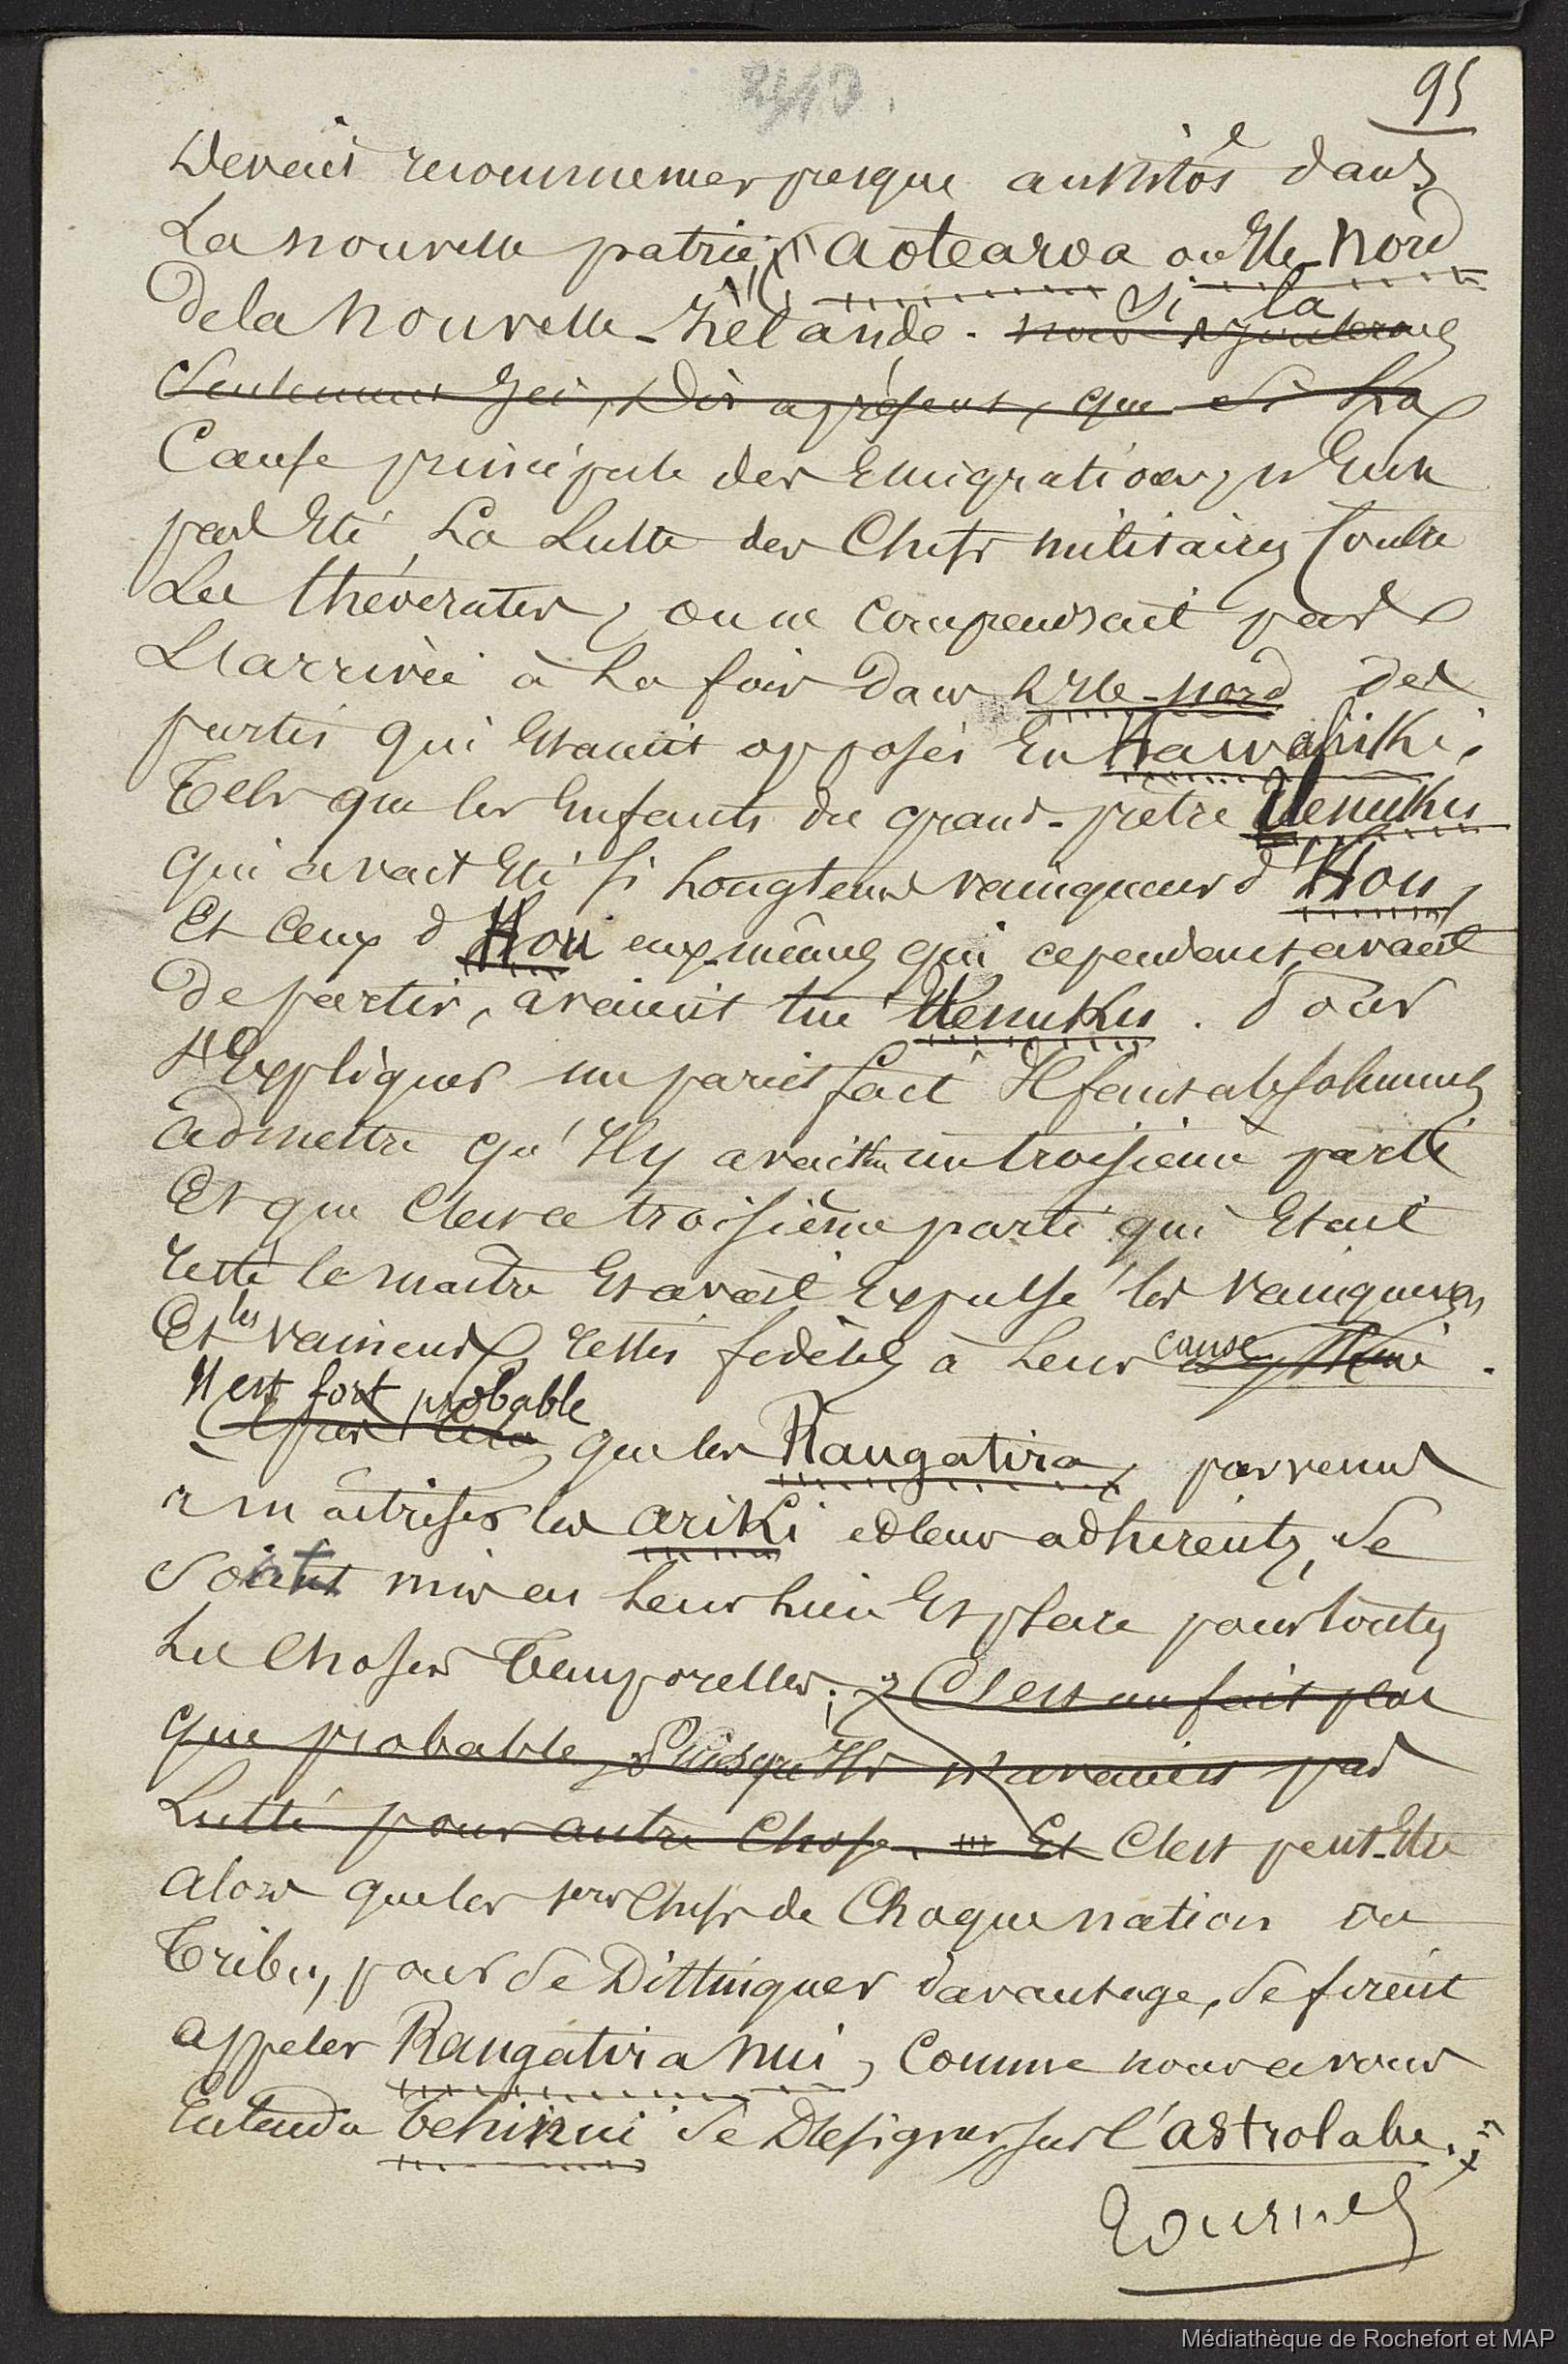 95
devait recommencer presque aussitôt dans
La nouvelle patrie, aotearoa ou Ile-nord
de la nouvelle-Zélande. nous ajouterons Si la
Seulement Ici, Dès à présent, que Si La
Cause principale des Emigrations, n'Eut
pas Eté La Lutte des Chefs militaires Contre
Les théocrates, on ne comprendrait pas
L'arrivée à La fois dans L'Ile-nord des
partis qui Etaient opposés En Hawahiki,
Tels que les Enfants du grand-prêtre Uenuku
qui avait Eté si Longtems vainqueur d'Hou,
Et Ceux d'Hou eux-mêmes qui cependant, avant
de partir, avaient tué Uenuku. Pour
s'Expliquer un pareil fait Il faut absolument
admettre qu'Il y avait un troisième parti
Et que C'est ce troisième parti qui Etait
resté le maitre Et avait Expulsé les vainqueurs
Et les vaincus restés fidèles à Leur cause
Il est fort probable
que les Rangatira, parvenus
à maitriser les ariki et leurs adhérents, Se
Soient mis en Leur Lieu Et place pour toutes
Les Choses Temporelles; C'est un fait plus
que probable, Puisqu'Ils n'avaient pas
Lutté pour autre Chose. Et C'est peut-Etre
alors que les 1ers Chefs de Chaque nation ou
Tribu, pour Se Distinguer davantage, Se firent
appeler Rangatira nui, Comme nous avons
Entendu Tehinui Se Désigner sur l'astrolabe.
Tournez
Médiathèque de Rochefort et MAP